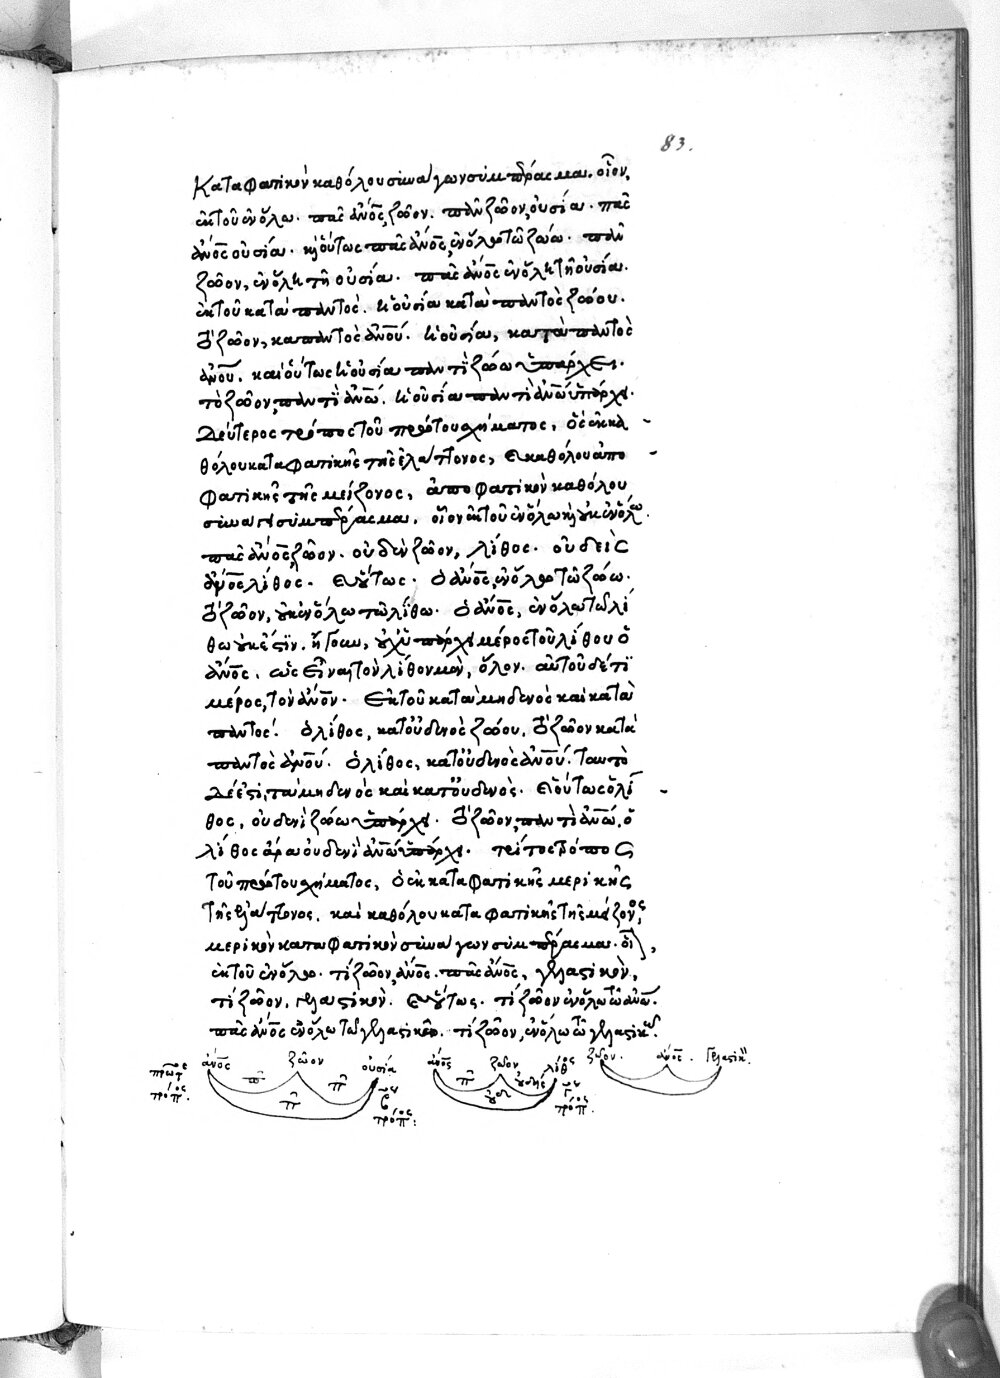 83.
Καταφατικὸν καθόλου συνάγων συμπέρασμα. οἷον,
ἐκ τοῦ ἐν ὅλω. πᾶς ἄνος, ζῶον. πᾶν ζῶον, οὐσία. πᾶς
ἄνος οὐσία. καὶ οὕτως πᾶς ἄνος, ἐν ὅλω τῶ ζώω. πᾶν
ζῶον, ἐν ὅλη τῆ οὐσία. πᾶς ἄνος ἐν ὅλη τῆ οὐσία.
ἐκ τοῦ κατὰ παντός. ἡ οὐσία κατὰ παντὸς ζώου.
τὸ ζῶον, κατὰ παντὸς ἀνου. ἡ οὐσία, κατὰ παντὸς
ἀνου. καὶ οὕτως ἡ οὐσία παντὶ ζώω ὑπάρχει.
τὸ ζῶον, παντὶ ἀνω. ἡ οὐσία παντὶ ἀνω ὑπάρχει.
Δεύτερος τρόπος τοῦ πρώτου σχήματος, ὁ ἐκ κα
θόλου καταφατικῆς τῆς ἐλάττονος, καὶ καθόλου ἀπο
φατικῆς τῆς μείζονος, ἀποφατικὸν καθόλου
συνάγει συμπέρασμα. οἷον ἐκ τοῦ ἐν ὅλω καὶ οὐκ ἐν ὅλω.
πᾶς ἄνος, ζῶον. οὐδὲν ζῶον, λίθος. οὐδεὶς
ἄνος λίθος. καὶ οὕτως. ὁ ἄνος, ἐν ὅλω τῶ ζώω.
τὸ ζῶον, οὐκ ἐν ὅλω τῶ λίθω. ὁ ἄνος, ἐν ὅλω τῶ λί
θω οὐκ ἔστιν. ἤγουν, οὐχ ὑπάρχει μέρος τοῦ λίθου ὁ
ἄνος. ὡς εἶναι τὸν λίθον μὲν, ὅλον. αὐτοῦ δέ τι
μέρος, τὸν ἄνον. ἐκ τοῦ κατὰ μηδενὸς καὶ κατὰ
παντός. ὁ λίθος, κατ' οὐδενὸς ζώου. τὸ ζῶον κατὰ
παντὸς ἀνου. ὁ λίθος, κατ' οὐδενὸς ἀνου. ταυτὸ
δέ ἐστι, τὸ μηδενὸς καὶ κατ' οὐδενὸς. καὶ οὕτως ὁ λί
θος, οὐδενὶ ζώω ὑπάρχει. τὸ ζῶον, παντὶ ἀνω. ὁ
λίθος ἄρα οὐδενὶ ἀνω ὑπάρχει. τρίτος τρόπος
τοῦ πρώτου σχήματος, ὁ ἐκ καταφατικῆς μερικῆς
τῆς ἐλάττονος, καὶ καθόλου καταφατικῆς τῆς μείζονος,
μερικὸν καταφατικὸν συνάγων συμπέρασμα. οἷον,
ἐκ τοῦ ἐν ὅλω. τὶ ζῶον, ἄνος. πᾶς ἄνος, γελαστικὸν,
τὶ ζῶον, γελαστικὸν. καὶ οὕτως. τὶ ζῶον ἐν ὅλω τῶ ἀνω.
πᾶς ἄνος ἐν ὅλω τῶ γελαστικῶ. τὶ ζῶον, ἐν ὅλω τῶ γελαστικῶ.
ἄνος ζῶον οὐσία ἄνος ζῶον λίθος ζῶον. ἄνος. γελαστικ.
πρῶτος τρόπος.
τρόπ: τρόπ.